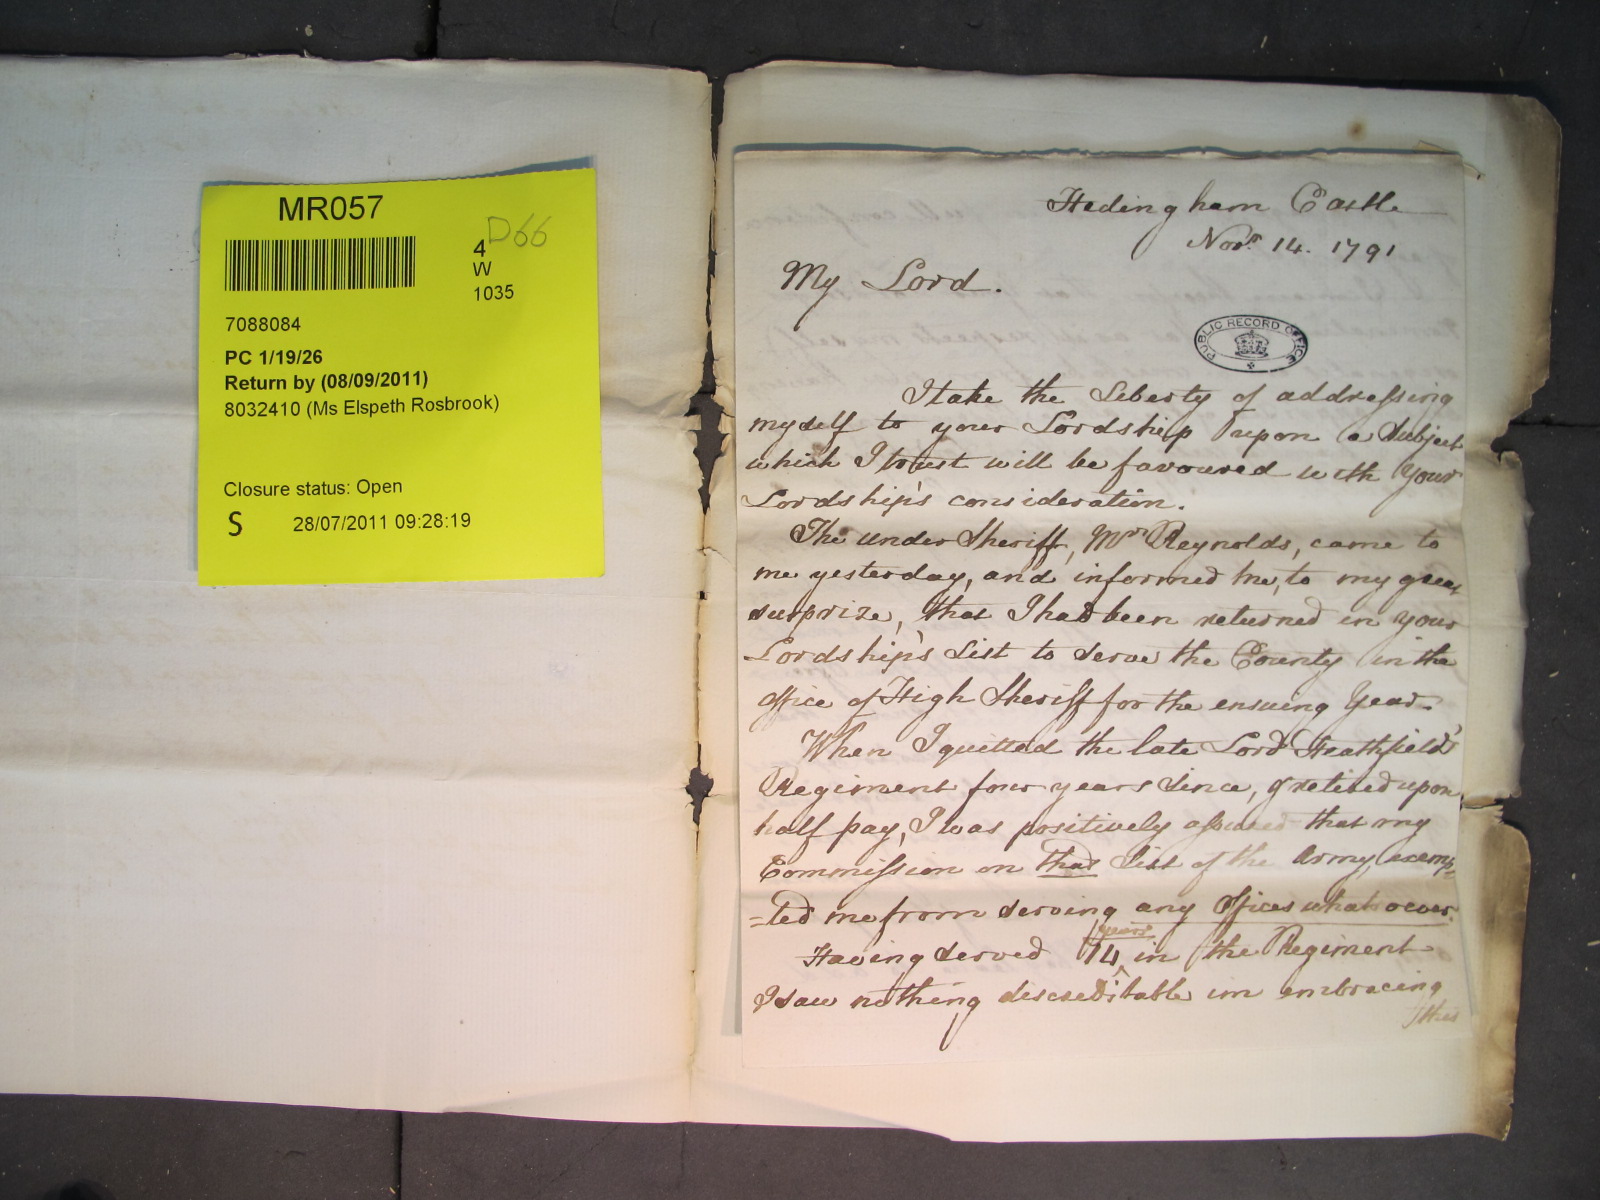 MR057
D66
4
W
1035
7088084
PC 1/19/26
Return by (08/09/2011)
8032410 (Ms Elspeth Rosbrook)
Closure status: Open
S 28/07/2011 09:28:19
Hedingham Castle
Novr. 14. 1791
My Lord.
PUBLIC RECORD OFFICE
I take the Liberty of addressing
myself to your Lordship upon a Subject
which I trust will be favoured with your
Lordship's consideration.
The under Sheriff, Mr Reynolds, came to
me yesterday, and informed me, to my great
surprize, that I had been returned in your
Lordship's List to serve the County in the
office of High Sheriff for the ensuing Year.
When I quitted the late Lord Heathfield's
Regiment four years since, & retired upon
half pay, I was positively assured that my
Commission on that List of the Army, exemp-
-ted me from serving any Offices whatsoever.
Having served 14 years in the Regiment
I saw nothing discreditable in embracing
this